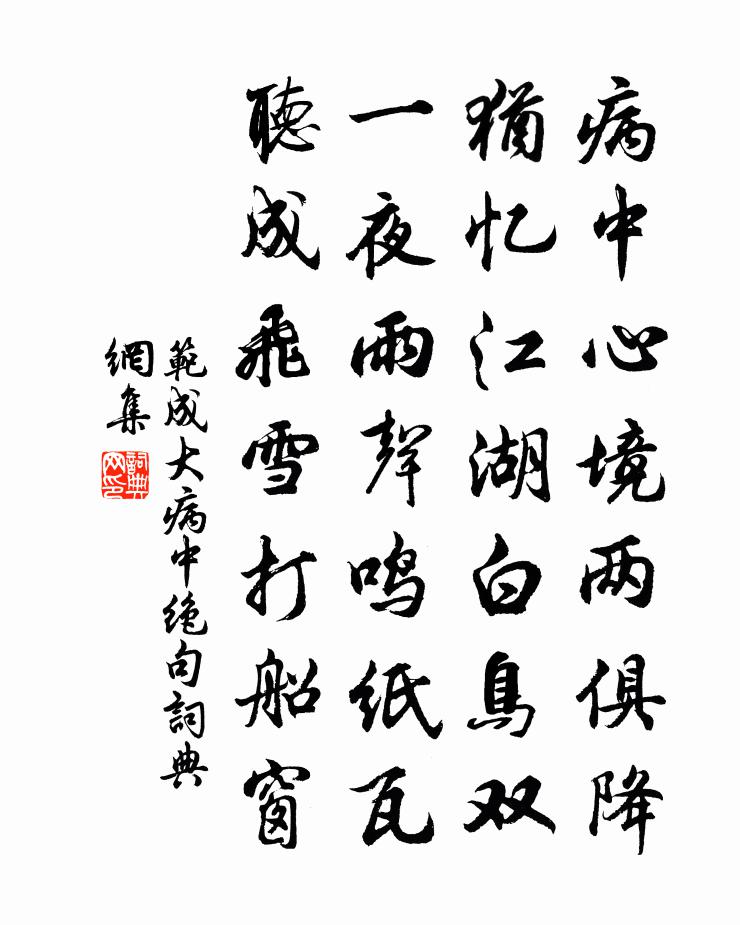 病中心境两俱降
猶忆江湖白鳥双
一夜雨聲鸣紙瓦
聴成飛雪打船窗
範成大病中绝句詞典
網集
詞典
网印